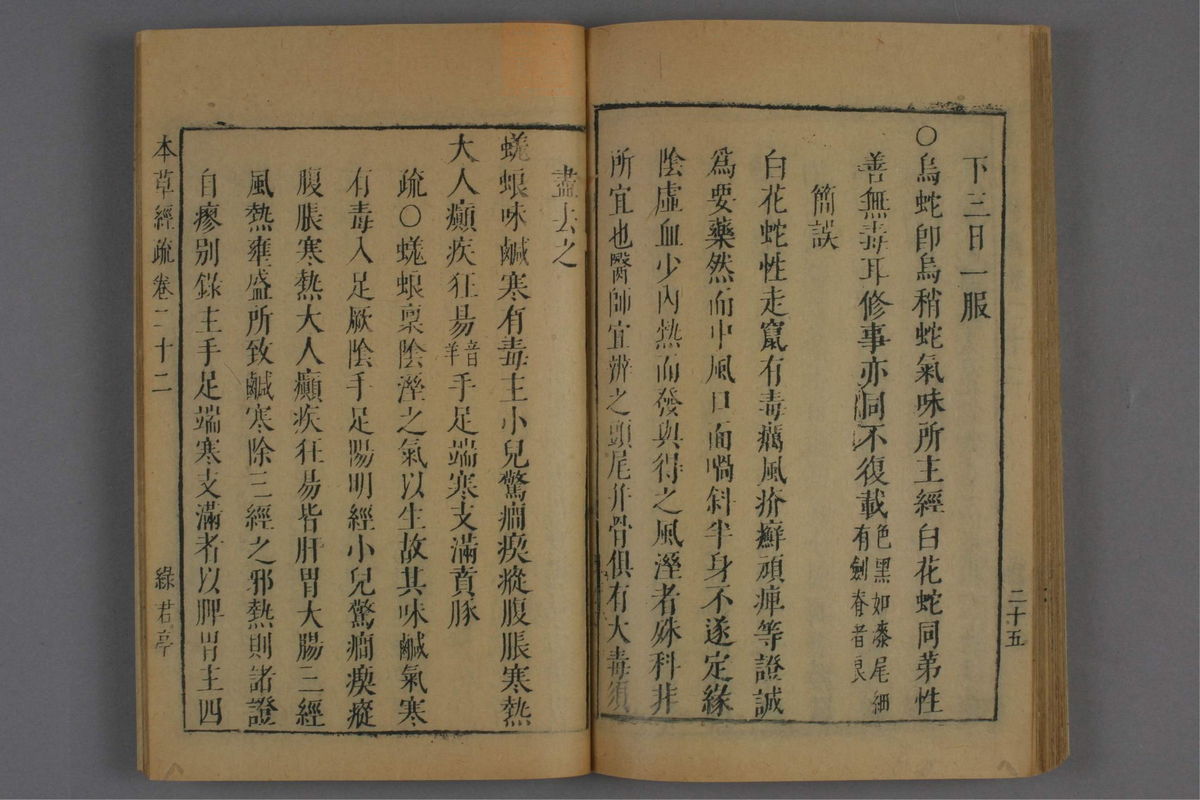 下三日一服
〇烏蛇卽烏稍蛇氣味所主經白花蛇同第性
善無毒耳修事亦同不復載色黑如漆尾細有劍脊者良
簡誤
白花蛇性走竄有毒癘風疥癬頑痺等證誠
爲要藥然而中風口面喎斜半身不遂定緣
陰虛血少內熱而發與得之風溼者殊科非
所宜也醫師宜辨之頭尾并骨俱有大毒須
二十五
盡去之
蜣蜋味鹹寒有毒主小兒驚癎瘈瘲腹脹寒熱
大人癲疾狂昜音羊手足端寒支滿賁豚
疏〇蜣蜋稟陰溼之氣以生故其味鹹氣寒
有毒入足厥陰手足陽明經小兒驚癎瘈瘲
腹脹寒熱大人癲疾狂昜皆肝胃大腸三經
風熱壅盛所致鹹寒除三經之邪熱則諸證
自瘳別錄主手足端寒支滿者以脾胃主四
本草經疏卷二十二
綠君亭